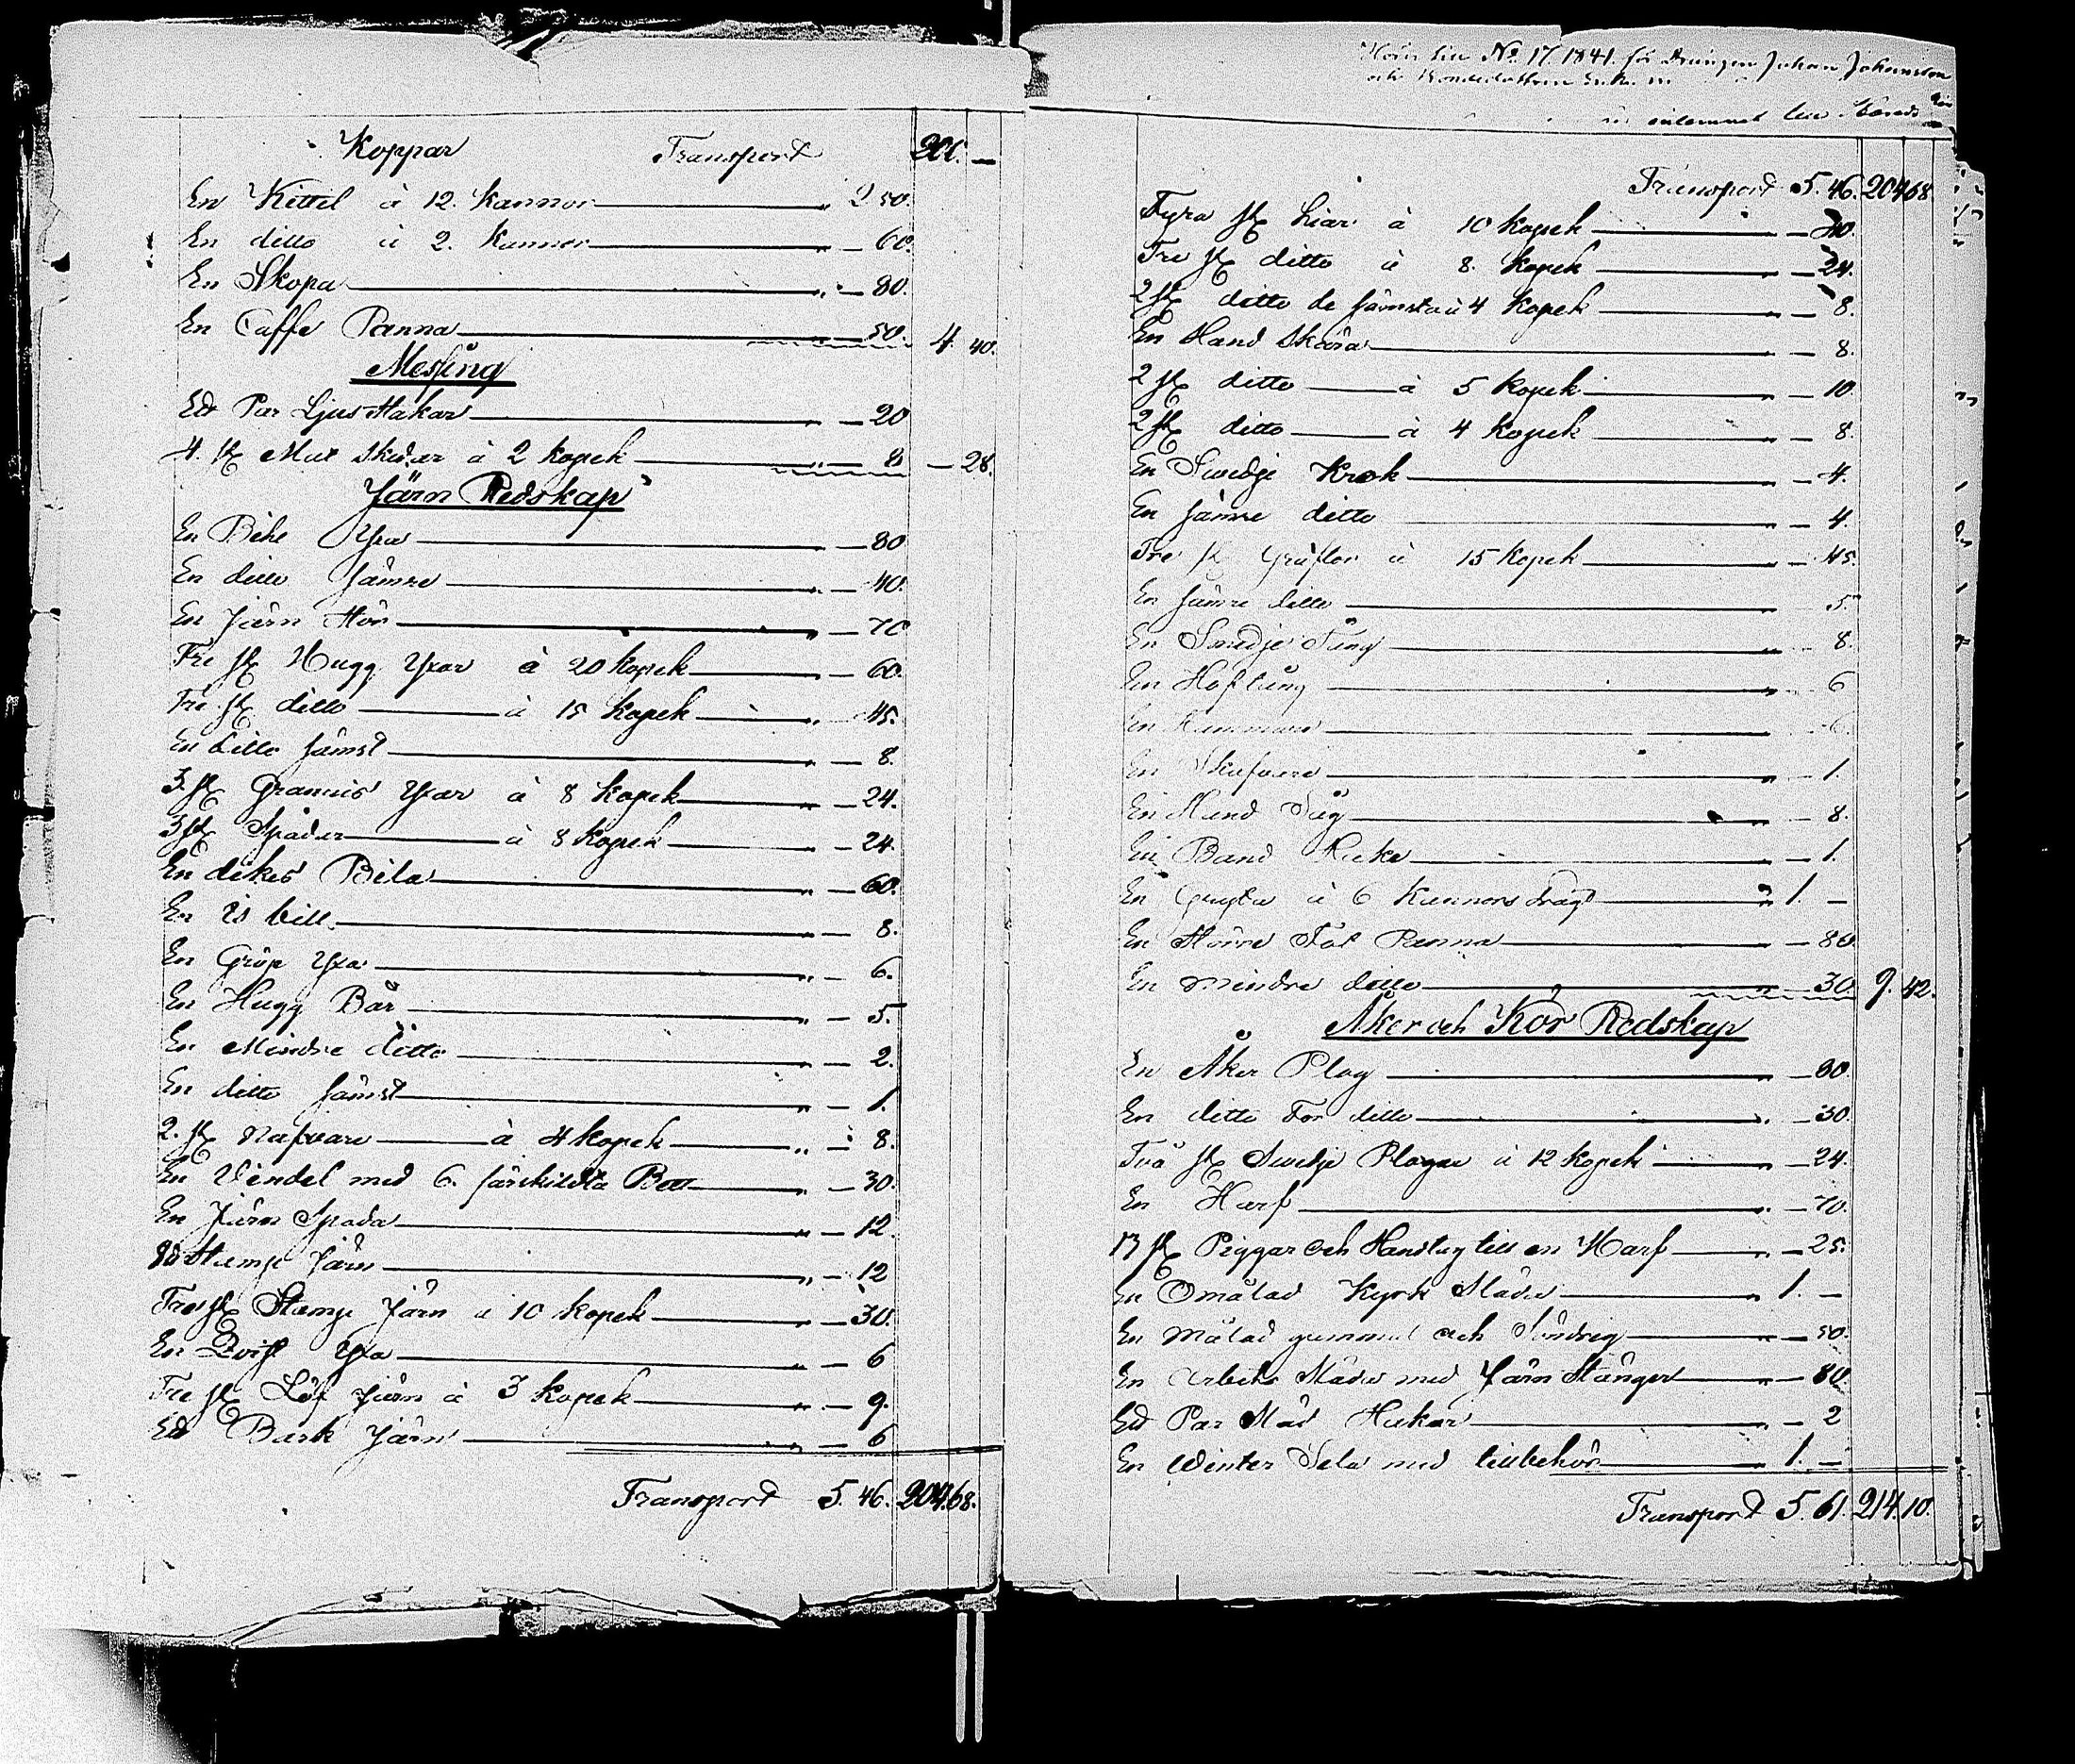 Koppar Transport 200. —
En Kittil à 12. Kannor „ 2 50.
En ditto à 2. Kannor „ — 60.
En Skopa „ — 80.
En Caffe Panna „ — 50. 4. 40.
Messing
Ett Par Ljus Stakar „ — 20
4. st Mat skedar à 2 kopek „ — 8 — 28.
Järn Redskap
En Bihl Yxa „ — 80
En ditto sämre „ — 40.
En Järn Stör „ — 70
Tre st Hugg Yxar à 20 kopek „ — 60.
Tre st ditto à 15 kopek „ — 45.
En ditto sämst „ — 8.
3. st Granris Yxar à 8 kopek „ — 24.
3 st Spadar à 8 kopek „ — 24.
En dikes Bila „ — 60.
En Is bill „ — 8.
En Gröp Yxa „ — 6.
En Hugg Bår „ — 5.
En Mindre ditto „ — 2.
En ditto sämst „ — 1.
2. st Nafvare à 4 kopek „ — 8.
En Vindel med 6. särskildta Borr „ — 30.
En Järn Spada „ — 12.
Ett Stemp Järn „ — 12
Tre st Stemp Järn à 10 kopek „ — 30.
En Qvist Yxa „ — 6
Tre st Löf Järn à 3 kopek „ — 9.
Ett Bark Järn „ — 6
Transport 5. 46. 204. 68.
Hörer till No 17. 1841. för Drängen Johan Johansson
och Bondedottren
inlemnat till Härads
Transport 5. 46. 204 68.
Fyra st Liar à 10 kopek „ — 40.
Tre st ditto à 8. kopek „ — 24.
2 st ditto de sämsta à 4 kopek „ — 8.
En Hand Skära „ — 8.
2 st ditto à 5 kopek „ — 10.
2 st ditto à 4 kopek „ — 8.
En Swedje Krok „ — 4.
En sämre ditto „ — 4
Tre st Gräftor à 15 kopek „ — 45.
En sämre ditto „ — 5
En Smedje Tång „ — 8.
En Hoftång „ — 6
En Hammare „ — 6.
En Skafvare „ — 1.
En Hand Såg „ — 8.
En Band Hake „ — 1.
En Gryta à 6 Kannors dragt „ 1. —
En Större Tåt Panna „ — 80.
En mindre ditto „ — 30. 9. 42.
Åker och Kör Redskap
En Åker Plog „ — 80.
En ditto Torr ditto „ — 30.
Två st Swedje Plogar à 12 kopek „ — 24.
En Harf „ — 70.
13 st Piggar och Handtag till en Harf „ — 25.
En Omålad Kyrk Släda „ 1. —
En Målad gammal och Söndrig „ — 50.
En Arbets Släda med Järn Stänger „ — 80.
Ett Par Släd Hakar „ — 2
En Winter Sela med tillbehör „ 1. —
Transport 5. 61. 214. 10.